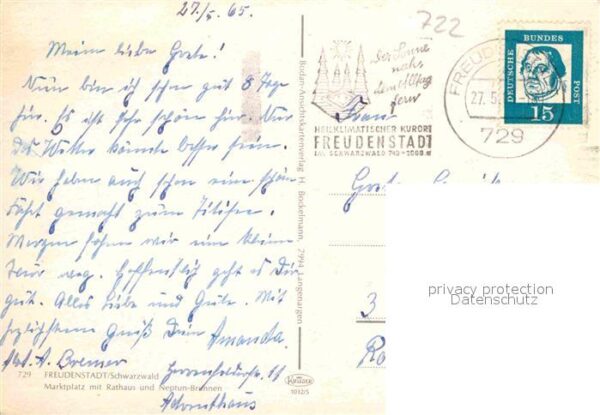 27./5. 65.
Meine liebe Grete!
Nun bin ich schon gut 8 Tage
hier. Es ist sehr schön hier. Nur
das Wetter könnte besser sein.
Wir haben auch schon eine schöne
Fahrt gemacht zum Titisee.
Morgen fahren wir eine kleine
Tour weg. Hoffentlich geht es Dir
gut. Alles Liebe und Gute. Mit
herzlichstem Gruß Dein Amanda.
Abs. A. Bremer
729 FREUDENSTADT/Schwarzwald
Marktplatz mit Rathaus und Neptun-Brunnen
Bodan-Ansichtskartenverlag H. Bockelmann, 7994 Langenargen
1032/5
722
der Sonne
nah
dem Alltag
fern
HEILKLIMATISCHER KURORT
FREUDENSTADT
IM SCHWARZWALD 740-1000 m
FREUDEN
27.5.
729
DEUTSCHE BUNDES POST
15
Frau
3
privacy protection
Datenschutz